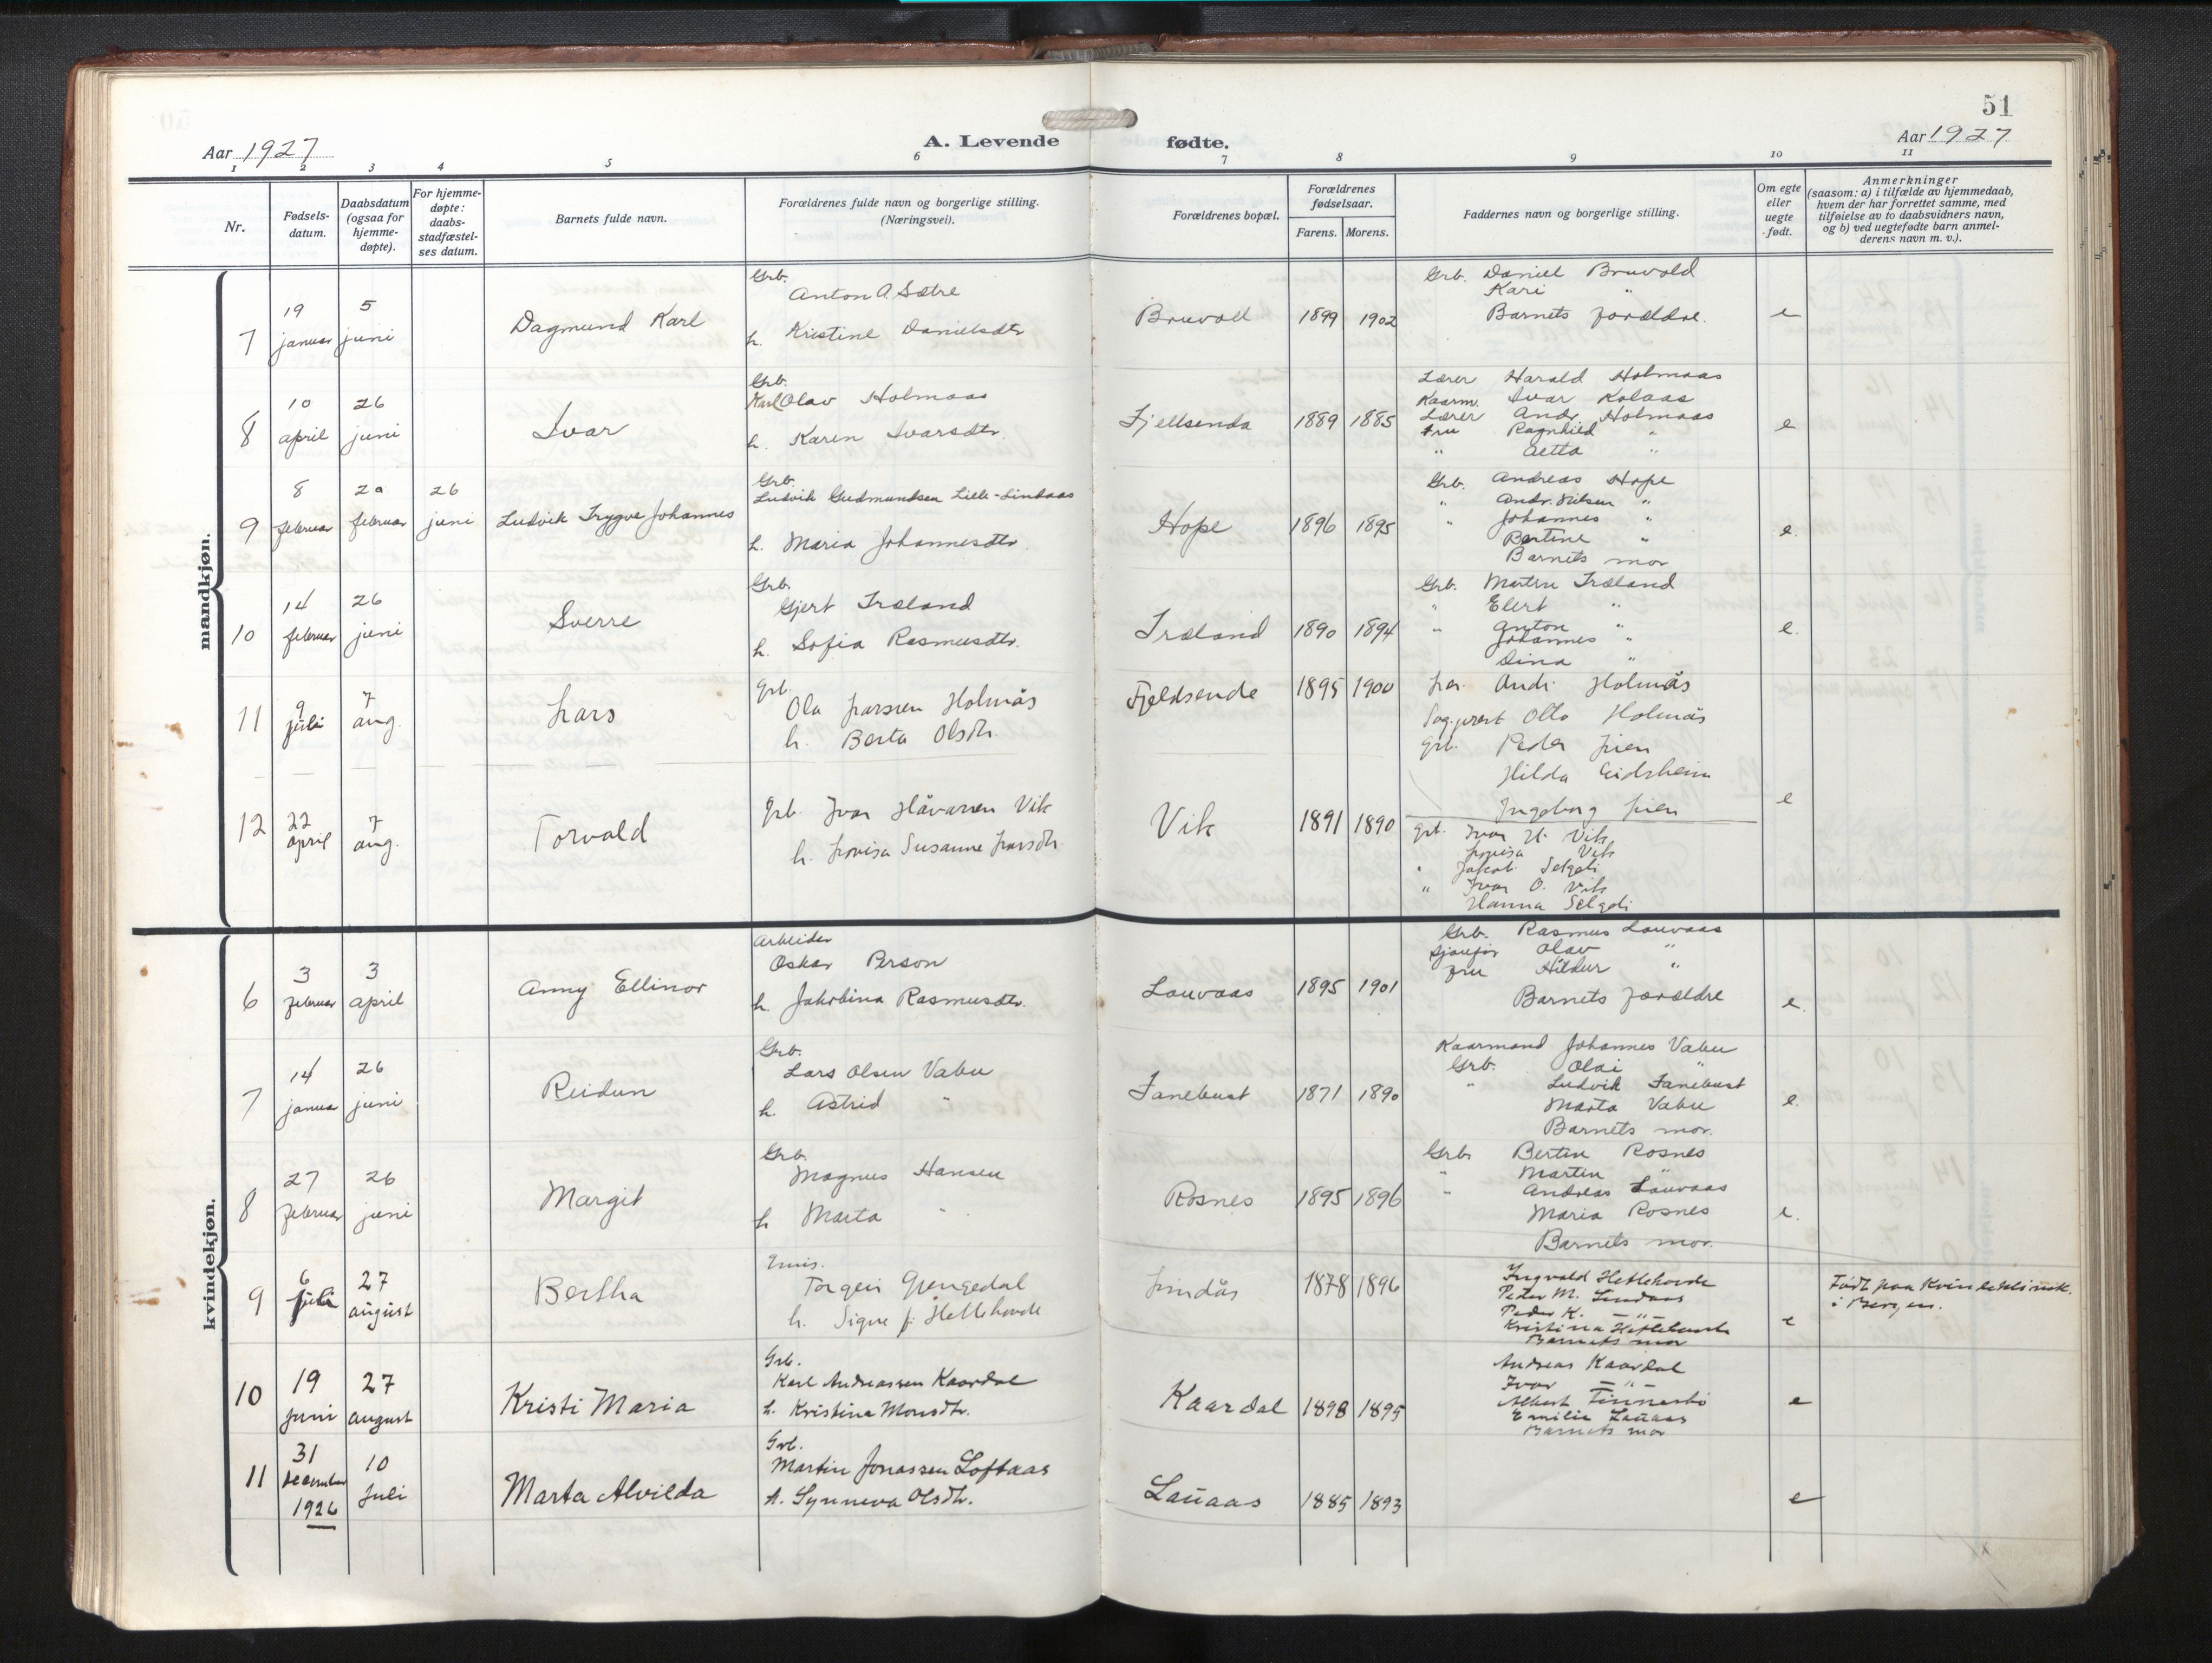 51
Aar 1927
A. Levende fødte.
Aar 1927
1 2 3 4 5 6 7 8 9 10 11
Nr.
Fødsels-
datum.
Daabsdatum
(ogsaa for
hjemme-
døpte).
For hjemme-
døpte:
daabs-
stadfæstel-
ses datum.
Barnets fulde navn.
Forældrenes fulde navn og borgerlige stilling.
(Næringsvei).
Forældrenes bopæl.
Forældrenes
fødselsaar.
Farens. Morens.
Faddernes navn og borgerlige stilling.
Om egte
eller
uegte
født.
Anmerkninger
(saasom: a) i tilfælde av hjemmedaab,
hvem der har forrettet samme, med
tilføielse av to daabsvidners navn,
og b) ved uegtefødte barn anmel-
derens navn m. v.).
mandkjøn.
7
19
januar
5
juni
Dagmund Karl
Grb.
Anton A. Sætre
h. Kristine Danielsdtr
Bruvoll
1899 1902
Grb. Daniel Bruvold
Kari "
Barnets forældre.
e
8
10
april
26
juni
Ivar
Grb.
Karl Olav Holmaas
h. Karen Ivarsdtr.
Fjellsenda
1889 1885
Lærer Harald Holmaas
Kaarm. Ivar Kolaas
Lærer Andr. Holmaas
Fru Ragnhild "
" Aetta "
e
9
8
februar
20
februar
26
juni
Ludvik Trygve Johannes
Grb.
Ludvik Gudmundsen Lille-Lindaas
h. Maria Johannesdtr.
Hope
1896 1895
Grb. Andreas Hope
" Andr. Nilsen "
" Johannes "
Bertine "
Barnets mor
e.
10
14
februar
26
juni
Sverre
Grb.
Gjert Træland
h. Sofia Rasmusdtr.
Træland
1890 1894
Grb. Martin Træland
" Elert "
" Anton "
Johannes "
Dina "
e.
11
9
juli
7
aug.
Lars
Grb.
Ola Larssen Holmås
h. Berta Olsdtr.
Fjeldsende
1895 1900
Lær. Andr. Holmås
Sog.prest Otto Holmås
Grb. Peder Lien
Hilda Eidsheim
Ingeborg Lien
e
12
22
april
7
aug.
Torvald
Grb. Ivar Håvarsen Vik
h. Lovisa Susanne Larsdtr.
Vik
1891 1890
Grb. Ivar H. Vik
Lovisa Vik
" Jakob Selgeli
" Ivar O. Vik
Hanna Selgeli
kvindekjøn.
6
3
februar
3
april
Anny Ellinor
Arbeider
Oskar Person
h. Jakobina Rasmusdtr.
Louvaas
1895 1901
Grb. Rasmus Louvaas
Sjaufør Olav "
Fru Hildur "
Barnets forældre
e.
7
14
januar
26
juni
Reidun
Grb.
Lars Olsen Vabu
h. Astrid "
Fanebust
1871 1890
Kaarmand Johannes Vabu
Grb. Olai "
" Ludvik Fanebust
Marta Vabu
Barnets mor.
e.
8
27
februar
26
juni
Margit
Grb.
Magnus Hansen
h Marta "
Rosnes
1895 1896
Grb. Bertin Rosnes
" Martin "
" Andreas Louvaas
Maria Rosnes
Barnets mor.
e.
9
6
juli
27
august
Bertha
Emis.
Torgeir Gjengedal
h. Signe f. Hetlehovde
Lindås
1878 1896
Ingvald Hetlehovde
Peter M. Lindaas
Peder K. — " —
Kristina Hetlehovde
Barnets mor
e
Født paa Kvindeklinik.
i Bergen.
10
19
juni
27
august
Kristi Maria
Grb.
Karl Andreassen Kaardal
h. Kristina Monsdtr.
Kaardal
1898 1895
Andreas Kaardal
Ivar — " —
Albert
Emilie Lauaas
Barnets mor
e
11
31
december
1926
10
juli
Marta Alvilda
Grb.
Martin Jonassen Loftaas
h. Synneva Olsdtr.
Lauaas
1885 1893
e